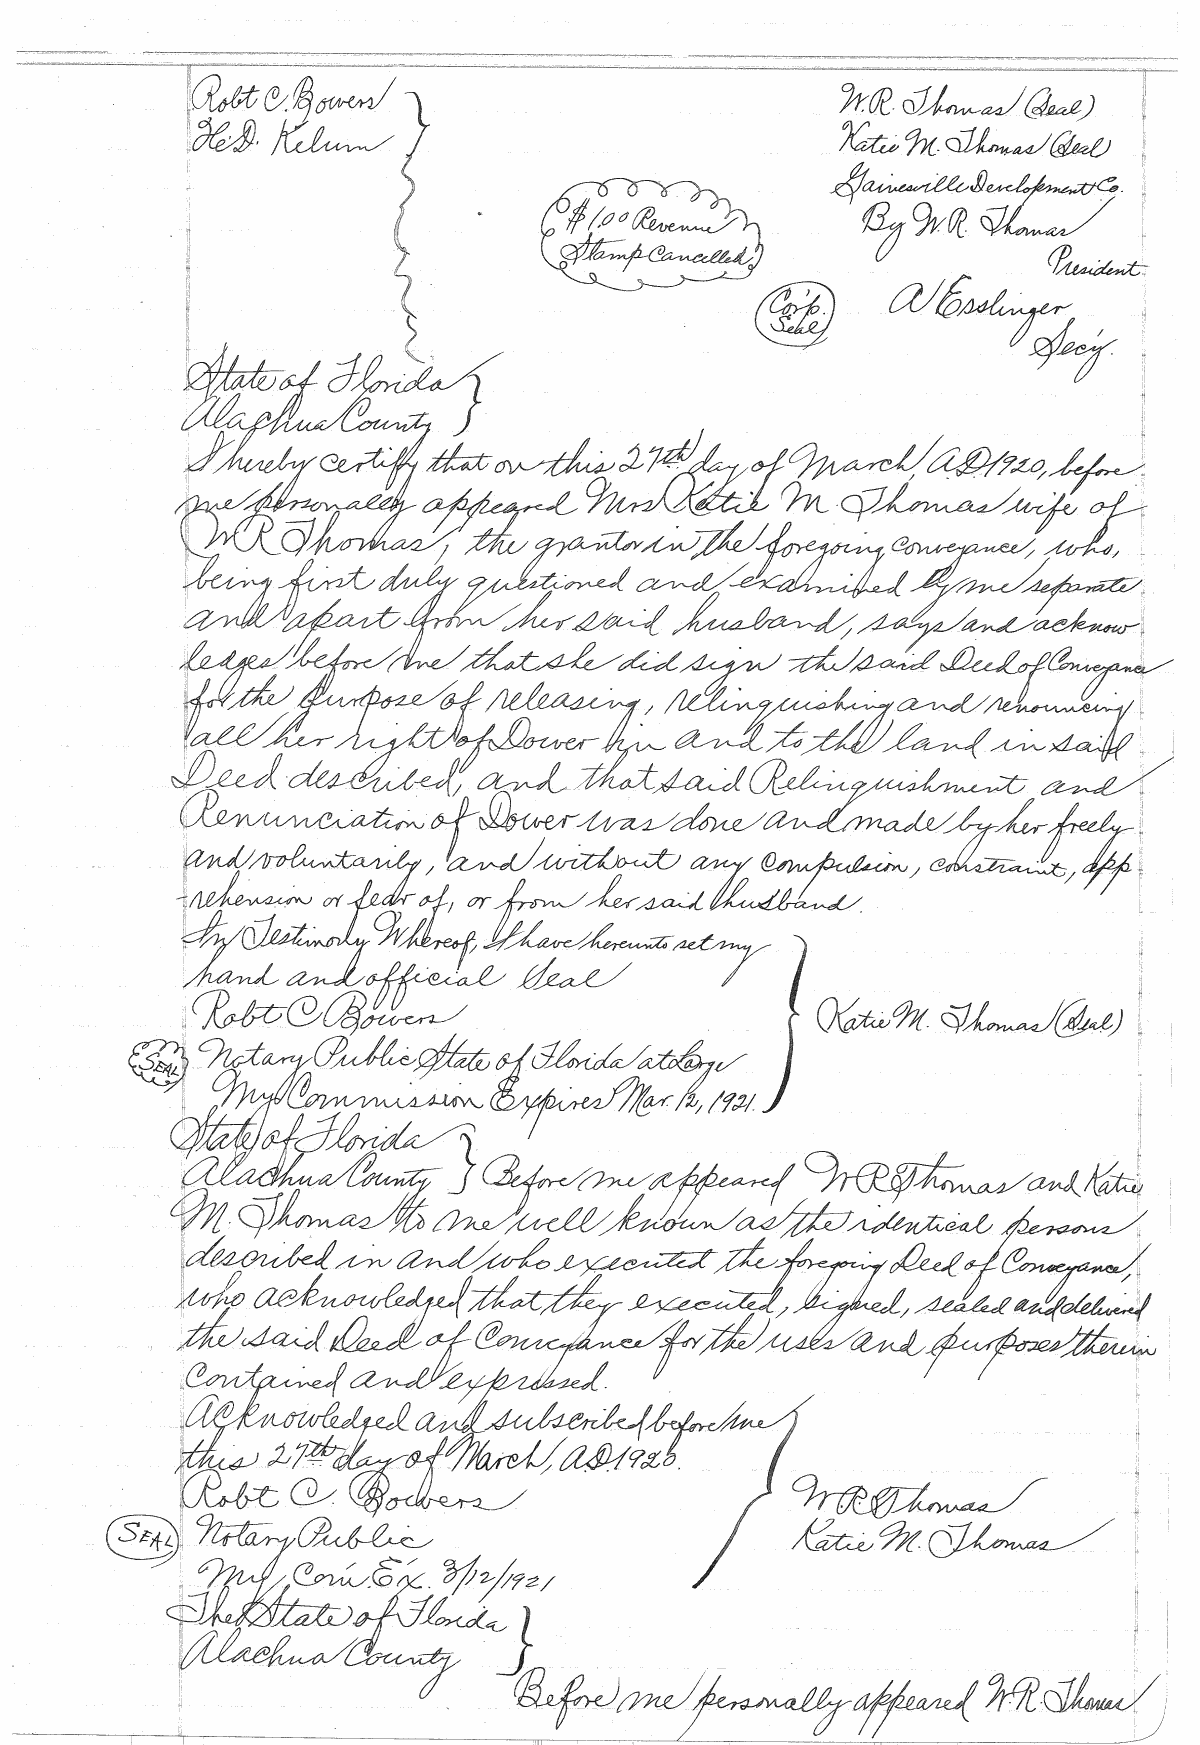 Robt C. Bowers
H.D. Kelum
W.R. Thomas (Seal)
Katie M. Thomas (Seal
Gainesville Development Co.
By W.R. Thomas
President
$1.00 Revenue
Stamp Cancelled.
Corp.
Seal
A Esslinger
Sec'y.
State of Florida
Alachua County
I hereby certify that on this 27th day of March A.D. 1920, before
me personally appeared Mrs Katie M. Thomas wife of
W R Thomas, the grantor in the foregoing conveyance, who,
being first duly questioned and examined by me separate
and apart from her said husband, says and acknow
ledges before me that she did sign the said Deed of Conveyance
for the purpose of releasing, relinquishing and renouncing
all her right of Dower in and to the land in said
Deed described, and that said Relinquishment and
Renunciation of Dower was done and made by her freely
and voluntarily, and without any compulsion, constraint, app
-rehension or fear of, or from her said husband.
In Testimony Whereof, I have hereunto set my
hand and official Seal
Robt C Bowers
Katie M. Thomas (Seal)
SEAL Notary Public State of Florida at Large
My Commission Expires Mar. 12, 1921.
State of Florida
Alachua County Before me appeared W R Thomas and Katie
M. Thomas to me well known as the identical persons
described in and who executed the foregoing Deed of Conveyance,
who acknowledged that they executed, signed, sealed and delivered
the said Deed of Conveyance for the uses and purposes therein
contained and expressed.
Acknowledged and subscribed before me
this 27th day of March, A.D. 1920.
Robt C. Bowers
W R Thomas
SEAL Notary Public
Katie M. Thomas
My Com. Ex. 3/12/1921
The State of Florida
Alachua County
Before me personally appeared W.R. Thomas